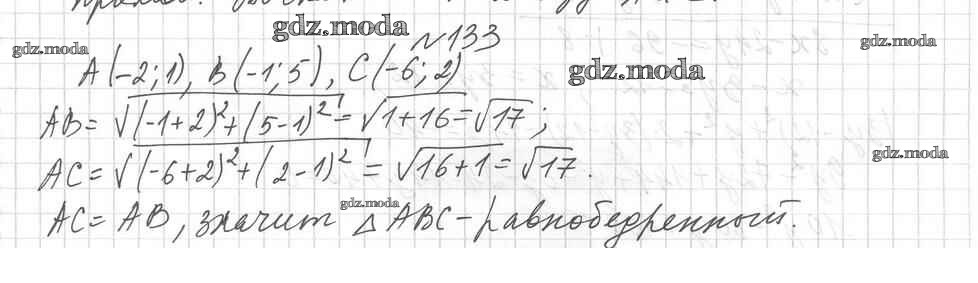 gdz.moda
№133
gdz.moda
A(-2;1), B(-1;5), C(-6;2)
gdz.moda
AB=√(-1+2)²+(5-1)²=√1+16=√17;
AC=√(-6+2)²+(2-1)²=√16+1=√17.
gdz.moda
gdz.moda
AC=AB, значит △ABC-равнобедренный.